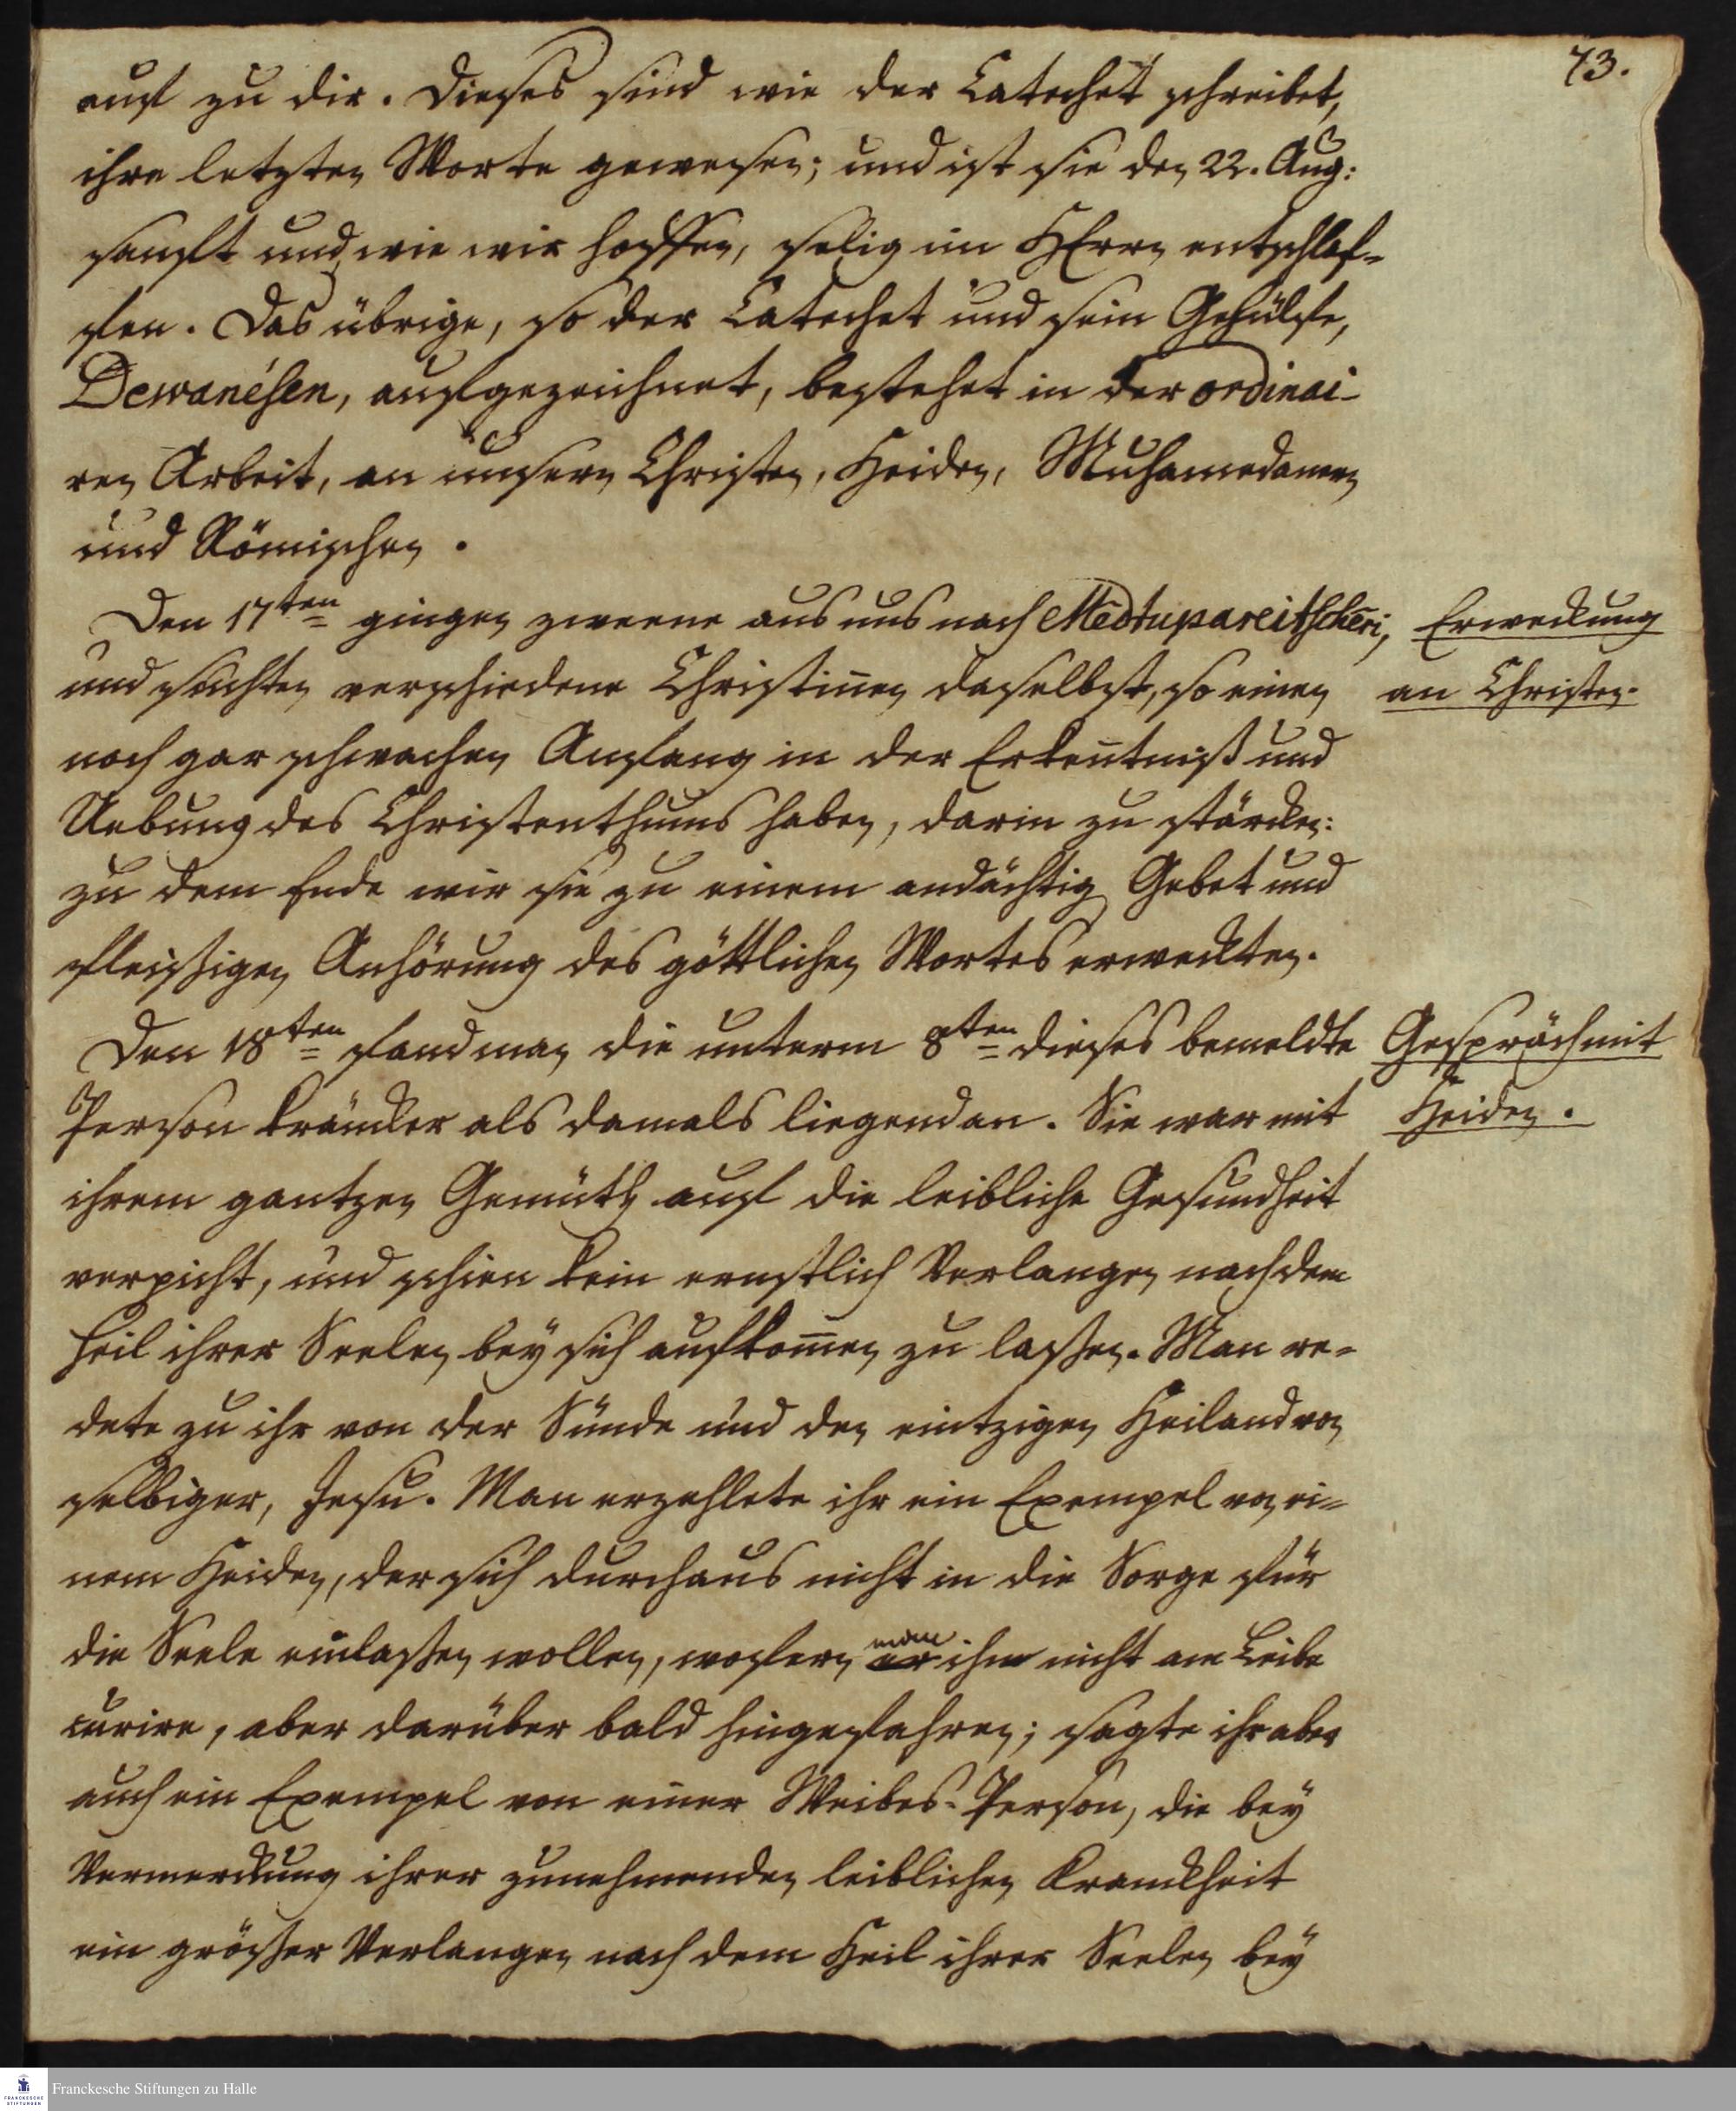 73.
auf zu dir. Dieses sind wie der Catechet schreibet,
ihre letzten Worte gewesen; und ist sie den 22. Aug:
sanft und, wie wir hoffen, selig im HErrn entschlaf-
fen. Das übrige, so der Catechet und sein Gehülfe,
Dewanésen, aufgezeichnet, bestehet in der ordinai-
ren Arbeit, an unsern Christen, Heiden, Muhamedanern
und Römischen.
Den 17ten gingen zweene aus uns nach Mēdtupareitschēri,
Erweckung
und suchten verschiedene Christinnen daselbst, so einen
an Christen.
noch gar schwachen Anfang in der Erkenntniß und
Uebung des Christenthums haben, darin zu stärcken:
zu dem Ende wir sie zu einem andächtig Gebet und
fleißigen Anhörung des göttlichen Wortes erweckten.
Den 18ten fand man die unterm 8ten dieses bemeldte
Gespräch mit
Person kräncker als damals liegend an. Sie war mit
Heiden.
ihrem gantzen Gemüth auf die leibliche Gesundheit
verpicht, und schien kein ernstlich Verlangen nach dem
Heil ihrer Seelen bey sich aufkommen zu laßen. Man re-
dete zu ihr von der Sünde und den eintzigen Heiland von
selbiger, Jesu. Man erzehlete ihr ein Exempel von ei-
nem Heiden, der sich durchaus nicht in die Sorge für
die Seele einlaßen wollen, wofern man er ihm nicht am Leibe
curire, aber darüber bald hingefahren; sagte ihr aber
auch ein Exempel von einer Weibes-Person, die bey
Vermerckung ihrer zunehmenden leiblichen Kranckheit
ein größer Verlangen nach dem Heil ihrer Seelen bey
Franckesche Stiftungen zu Halle
FRANCKESCHE
STIFTUNGEN